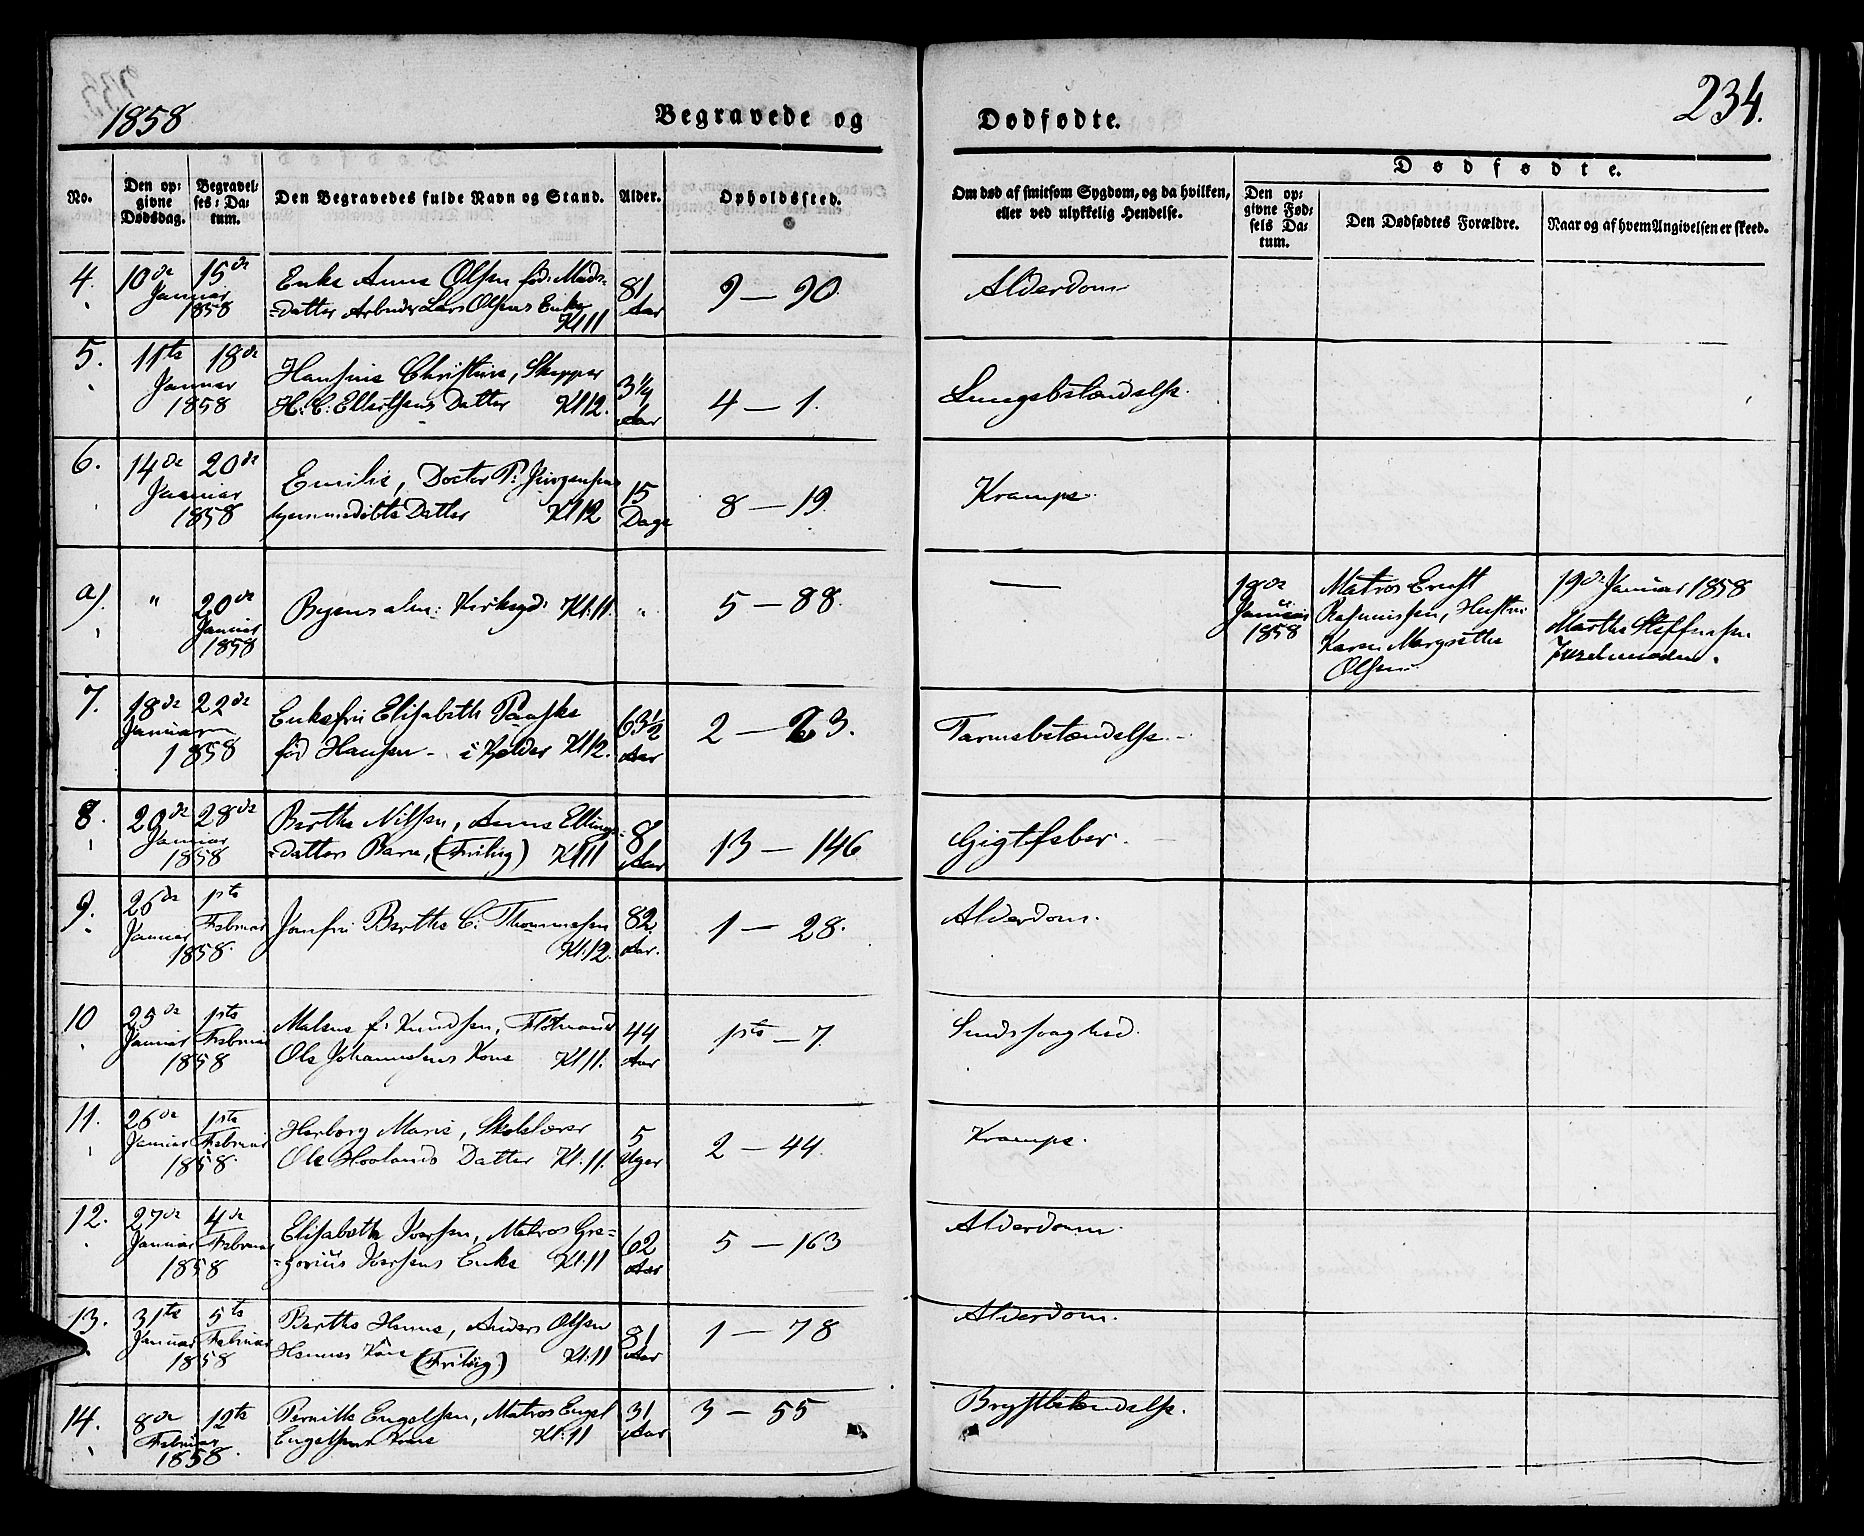 1858
Begravede og
Dødfødte.
234.
No.
Den op-
givne
Dødsdag.
Begravel-
ses-Da-
tum.
Den Begravedes fulde Navn og Stand.
Alder.
Opholdssted.
Om død af smitsom Sygdom, og da hvilken,
eller ved ulykkelig Hendelse.
Dødfødte.
Den op-
givne Fød-
sels Da-
tum.
Den Dødfødtes Forældre.
Naar og af hvem Angivelsen er skeed.
4. 10de 15de Enke Anne Olsen fød: Mads- 81 9 — 90. Alderdom
Januar
1858 =datter Arbeider Lars Olsens Enke Aar
Kl 11
5. 11te 18de Hansine Christine, Skipper 3 1/4 4 — 1. Lungebetændelse.
Januar
1858 H: C: Ellertsens Datter Kl 12. Aar
6. 14de 20de Emilie, Doctor P: Jürgensens 15 8 — 19 Krampe.
Januar
1858 hjemmedøbte Datter Kl 12 Dage
a). " 20de Byens alm: Kirkegd: Kl: 11. " 5 — 88. —
Januar
1858
18de Matros Ernst 19de Januar 1858
Januar Rasmussen, Hustru
1858 Karen Margrethe Marthe Steffensen
Olsen Jordemoder.
7. 18de 22de Enkefru Elisabeth Paaske 63 1/2 2 — 63. Tarmebetændelse.
Januar
1858 fød Hansen - i Kjelder Kl 12. Aar
8. 20de 28de Berthe Nilsen, Anne Ellings- 8 13 — 146 Gigtfeber.
Januar
1858 =datters Barn, (Frilig) Kl 11 Aar
9. 26de 1ste Jomfru Berthe C: Thommesen 82 1 — 28. Alderdom.
Januar Februar
1858. Kl: 12. Aar.
10 25de 1ste Malene f: Knudsen, 44 1ste — 7. Sindssvaghed.
Januar Februar
1858 Ole Johannesens Kone Kl 11. Aar
11. 26de 1ste Herborg Marie, Skolelærer 5 2 — 44. Krampe.
Januar Februar
1858. Ole Hovlands Datter Kl: 11. Uger
12. 27de 4de Elisabeth Iversen, Matros Gre- 62 5 — 163 Alderdom.
Januar Februar
1858 =gorius Iversens Enke Kl: 11 Aar
13. 31te 5te Berthe Hanne, Anders Olsen 81 1 — 78 Alderdom.
Januar Februar
1858 Kone (Frilig) Kl: 11 Aar
14. 8de 12te Pernille Engelsen, Matros Engel 31 3 — 55 Brystbetændelse.
Februar Engelsens Kone Kl: 11 Aar
1858.